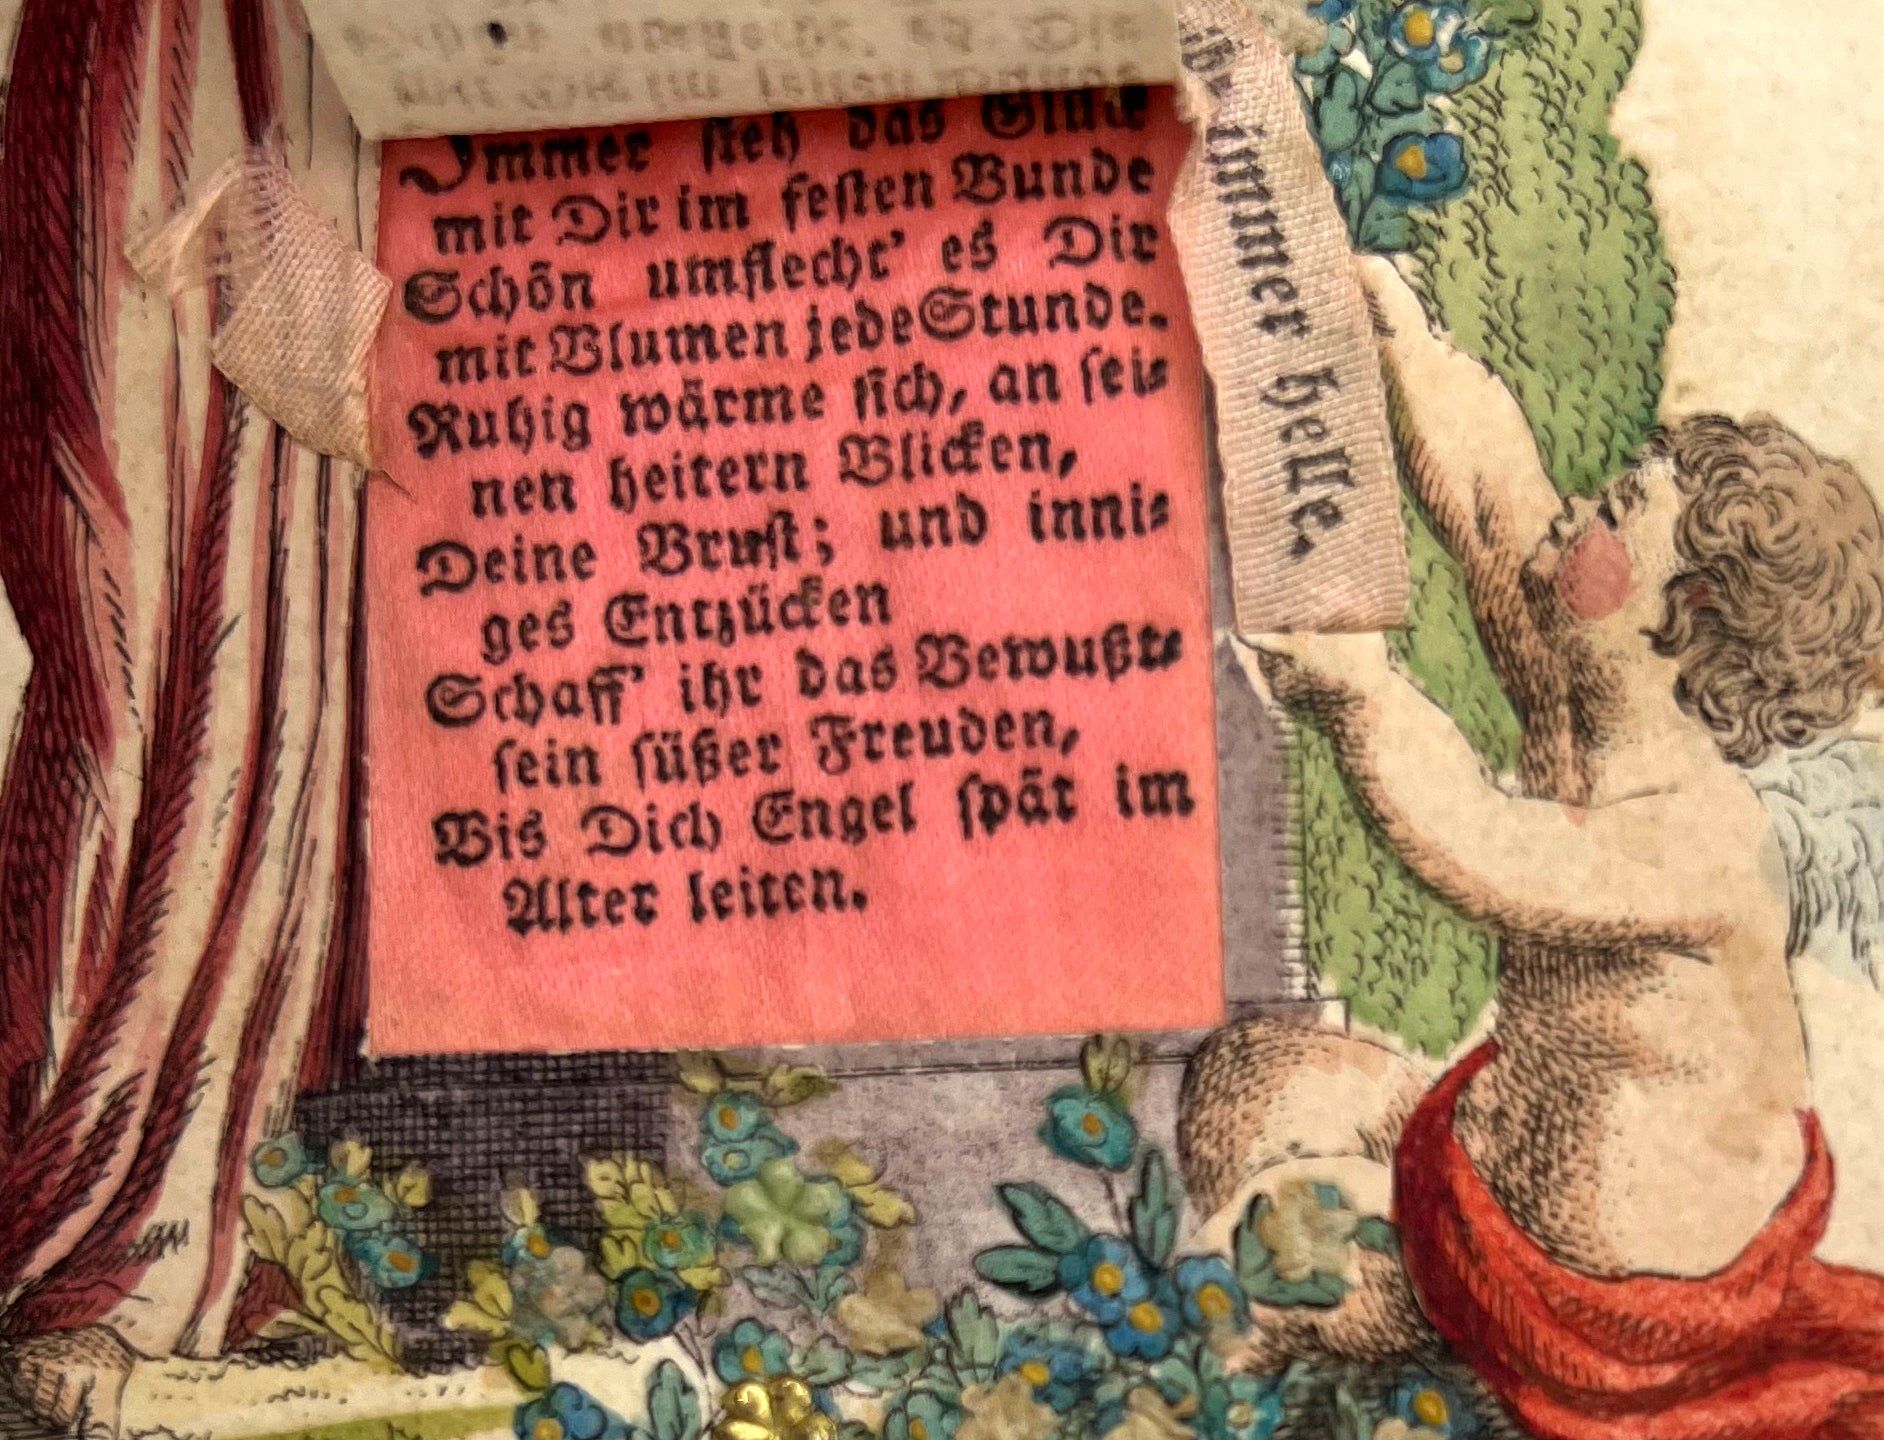 Immer steh das Glück
mit Dir im festen Bunde
Schön umflecht' es Dir
mit Blumen jede Stunde.
Ruhig wärme sich, an sei⸗
nen heitern Blicken,
Deine Brust; und inni⸗
ges Entzücken
Schaff' ihr das Bewußt⸗
sein süßer Freuden,
Bis Dich Engel spät im
Alter leiten.
immer helle.